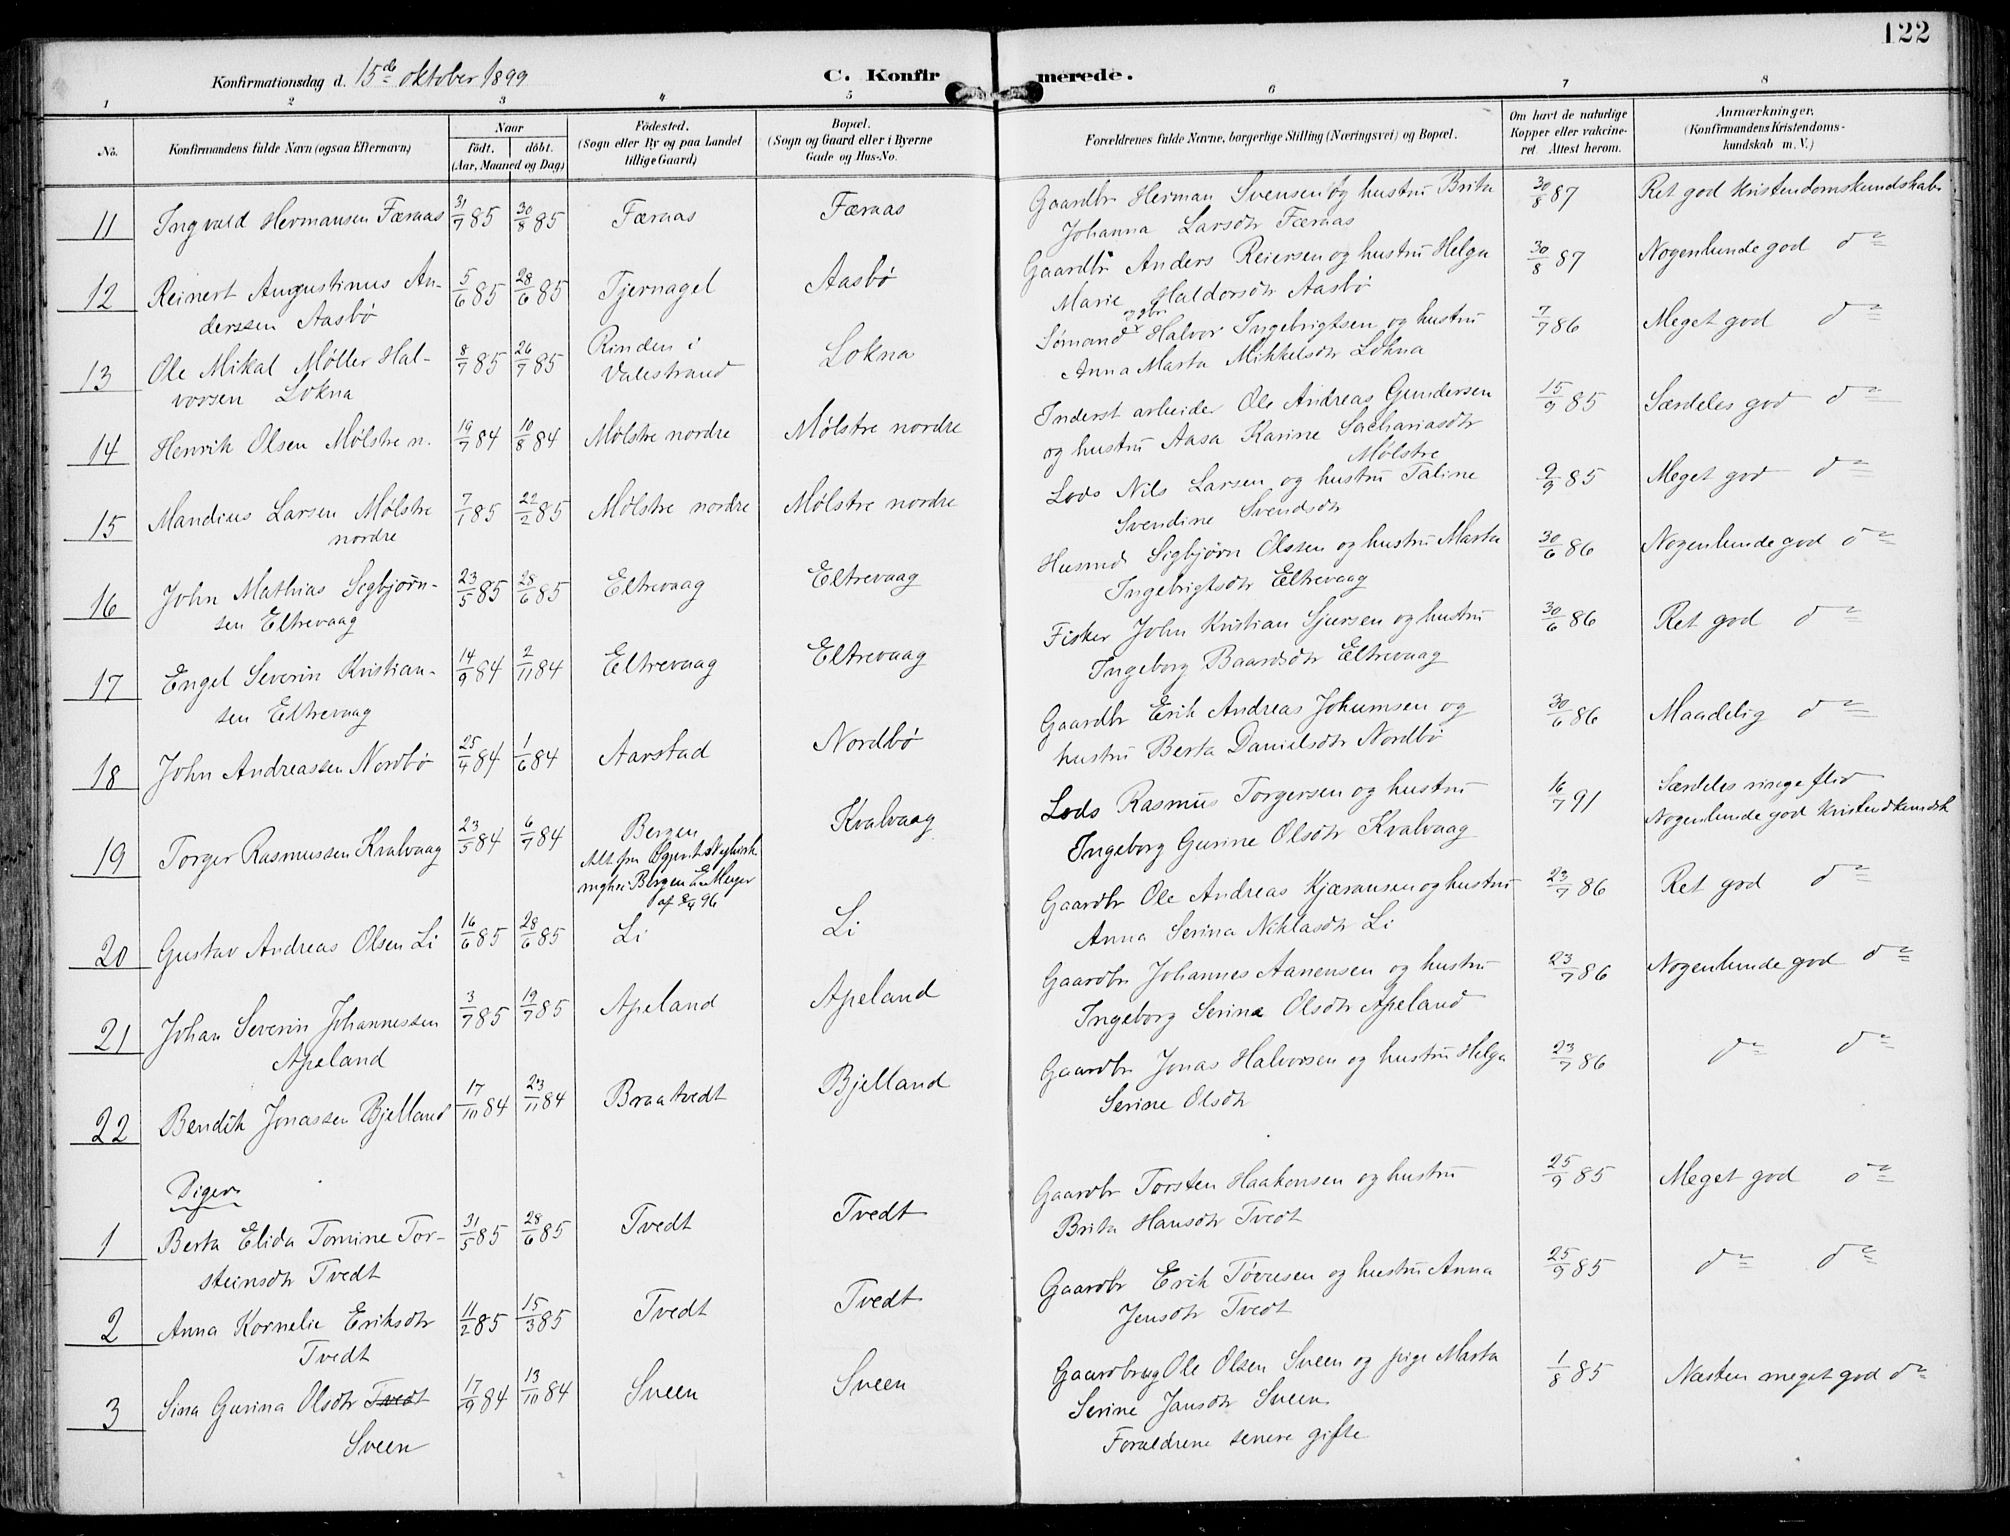 122
Konfirmationsdag d. 15de oktober 1899
C. Konfirmerede.
1 2 3 4 5 6 7 8
No.
Konfirmandens fulde Navn (ogsaa Efternavn)
Naar
Födt. döbt.
(Aar, Maaned og Dag)
Födested.
(Sogn eller By og paa Landet
tillige Gaard)
Bopæl.
(Sogn og Gaard eller i Byerne
Gade og Hus-No.
Forældrenes fulde Navne, borgerlige Stilling (Næringsvei) og Bopæl.
Om havt de naturlige
Kopper eller vakcine-
ret. Attest herom.
Anmærkninger.
(Konfirmandens Kristendoms-
kundskab m. V.)
11 Ingvald Hermansen Færaas 31/7 85 30/8 85 Færaas Færaas Gaardbr Herman Svensen og hustru Brita 30/8 87 Ret god Kristendomskundskab
Johanna Larsdtr Færaas
12 Reinert Augustinus An- 5/6 85 28/6 85 Tjernagel Aasbø Gaardbr Anders Reiersen og hustru Helga 30/8 87 Nogenlunde god do
derssen Aasbø
Marie Haldorsdtr Aasbø
13 Ole Mikal Møller Hal- 8/7 85 26/7 85 Rinden i Lokna Sømand og gbr Halvor Ingebrigtsen og hustru 7/7 86 Meget god do
vorsen Lokna Valestrand
Anna Marta Mikkelsdtr Lokna
14 Henrik Olsen Mølstre n. 19/7 84 10/8 84 Mølstre nordre Mølstre nordre Inderst arbeider Ole Andreas Gundersen 15/9 85 Særdeles god do
og hustru Aasa Karine Sachariasdtr
Mølstre
15 Mandius Larsen Mølstre 7/1 85 22/2 85 Mølstre nordre Mølstre nordre Lods Nils Larsen og hustru Taline 2/9 85 Meget god do
nordre
Svendine Svendsdtr
16 John Mathias Sigbjørn- 23/5 85 28/6 85 Eltrevaag Eltrevaag Husmd Sigbjørn Olssen og hustru Marta 30/6 86 Nogenlunde god do
sen Eltrevaag
Ingebrigtsdtr Eltrevaag
17 Engel Severin Kristian- 14/9 84 2/11 84 Eltrevaag Eltrevaag Fisker John Kristian Sjursen og hustru 30/6 86 Ret god do
sen Eltrevaag
Ingeborg Baardsdtr Eltrevaag
18 John Andreassen Nordbø 25/4 84 1/6 84 Aarstad Nordbø Gaardbr Erik Andreas Johumsen og 30/6 86 Maadelig do
hustru Berta Danielsdtr Nordbø
19 Torger Rasmussen Kvalvaag 23/5 84 6/7 84 Bergen Kvalvaag Lods Rasmus Torgersen og hustru 16/7 91 Særdeles ringe flid
Ingeborg Gurine Olsdtr Kvalvaag Nogenlunde god Kristendkundsk
20 Gustav Andreas Olsen Li 16/6 85 28/6 85 Li Li Gaardbr Ole Andreas Kjæransen og hustru 23/7 86 Ret god do
Anna Serina Niklasdtr Li
21 Johan Severin Johannessen 3/7 85 19/7 85 Apeland Apeland Gaardbr Johannes Aanensen og hustru 23/7 86 Nogenlunde god do
Apeland
Ingeborg Serine Olsdtr Apeland
22 Bendik Jonassen Bjelland 17/10 84 23/11 84 Braatvedt Bjelland Gaardbr Jonas Halvorsen og hustru Helga 23/7 86 do do
Serine Olsdtr
Piger
1 Berta Elida Tomine Tor- 31/5 85 28/6 85 Tvedt Tvedt Gaardbr Torsten Haakonsen og hustru 25/9 85 Meget god do
steinsdtr Tvedt
Brita Hansdtr Tvedt
2 Anna Kornelie Eriksdtr 11/2 85 15/3 85 Tvedt Tvedt Gaardbr Erik Tøvesen og hustru Anna 25/9 85 do do
Tvedt
Jensdtr Tvedt
3 Sina Gurina Olsdtr Tvedt 17/9 84 13/10 84 Sveen Sveen Gaardbrug Ole Olsen Sveen og pige Marta 1/8 85 Næsten meget god do
Sveen
Serine Jansdtr Sveen
Forældrene senere gifte